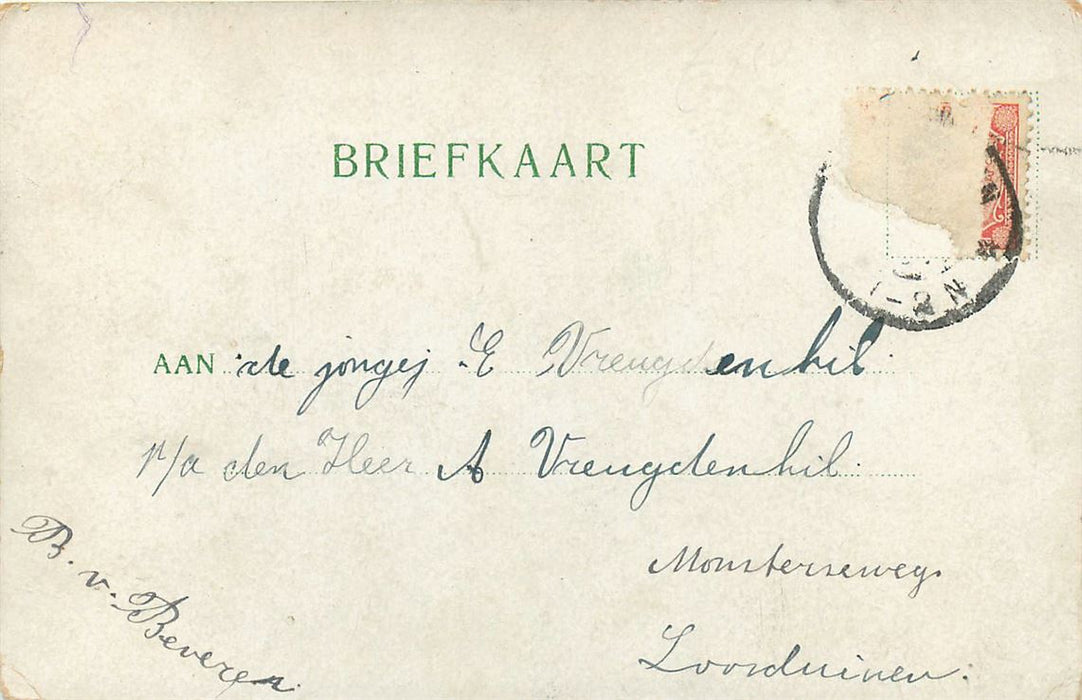 BRIEFKAART
AAN de jongej E Vreugdenhil
p/a den Heer A Vreugdenhil.
Monsterseweg.
Loosduinen.
B. v. Beveren.